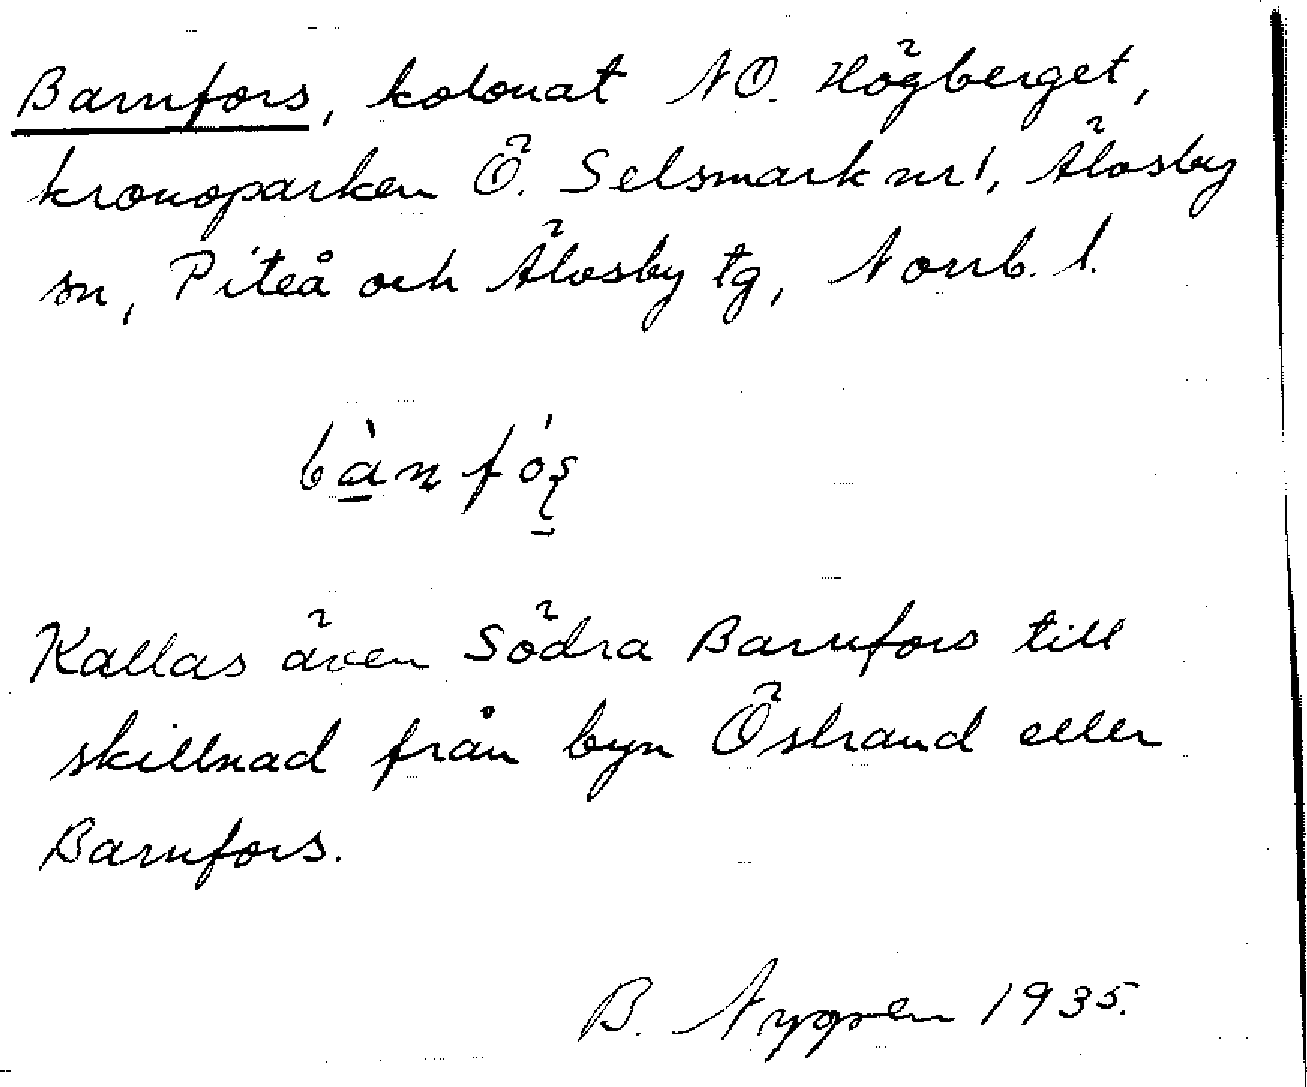 Barnfors, kolonat NO. Högberget,
kronoparken Ö. Selsmark nr 1, Älvsby
sn, Piteå och Älvsby tg, Norrb. l.
bànfóş
Kallas även Södra Barnfors till
skillnad från byn Östrand eller
Barnfors.
B. Nygren 1935.